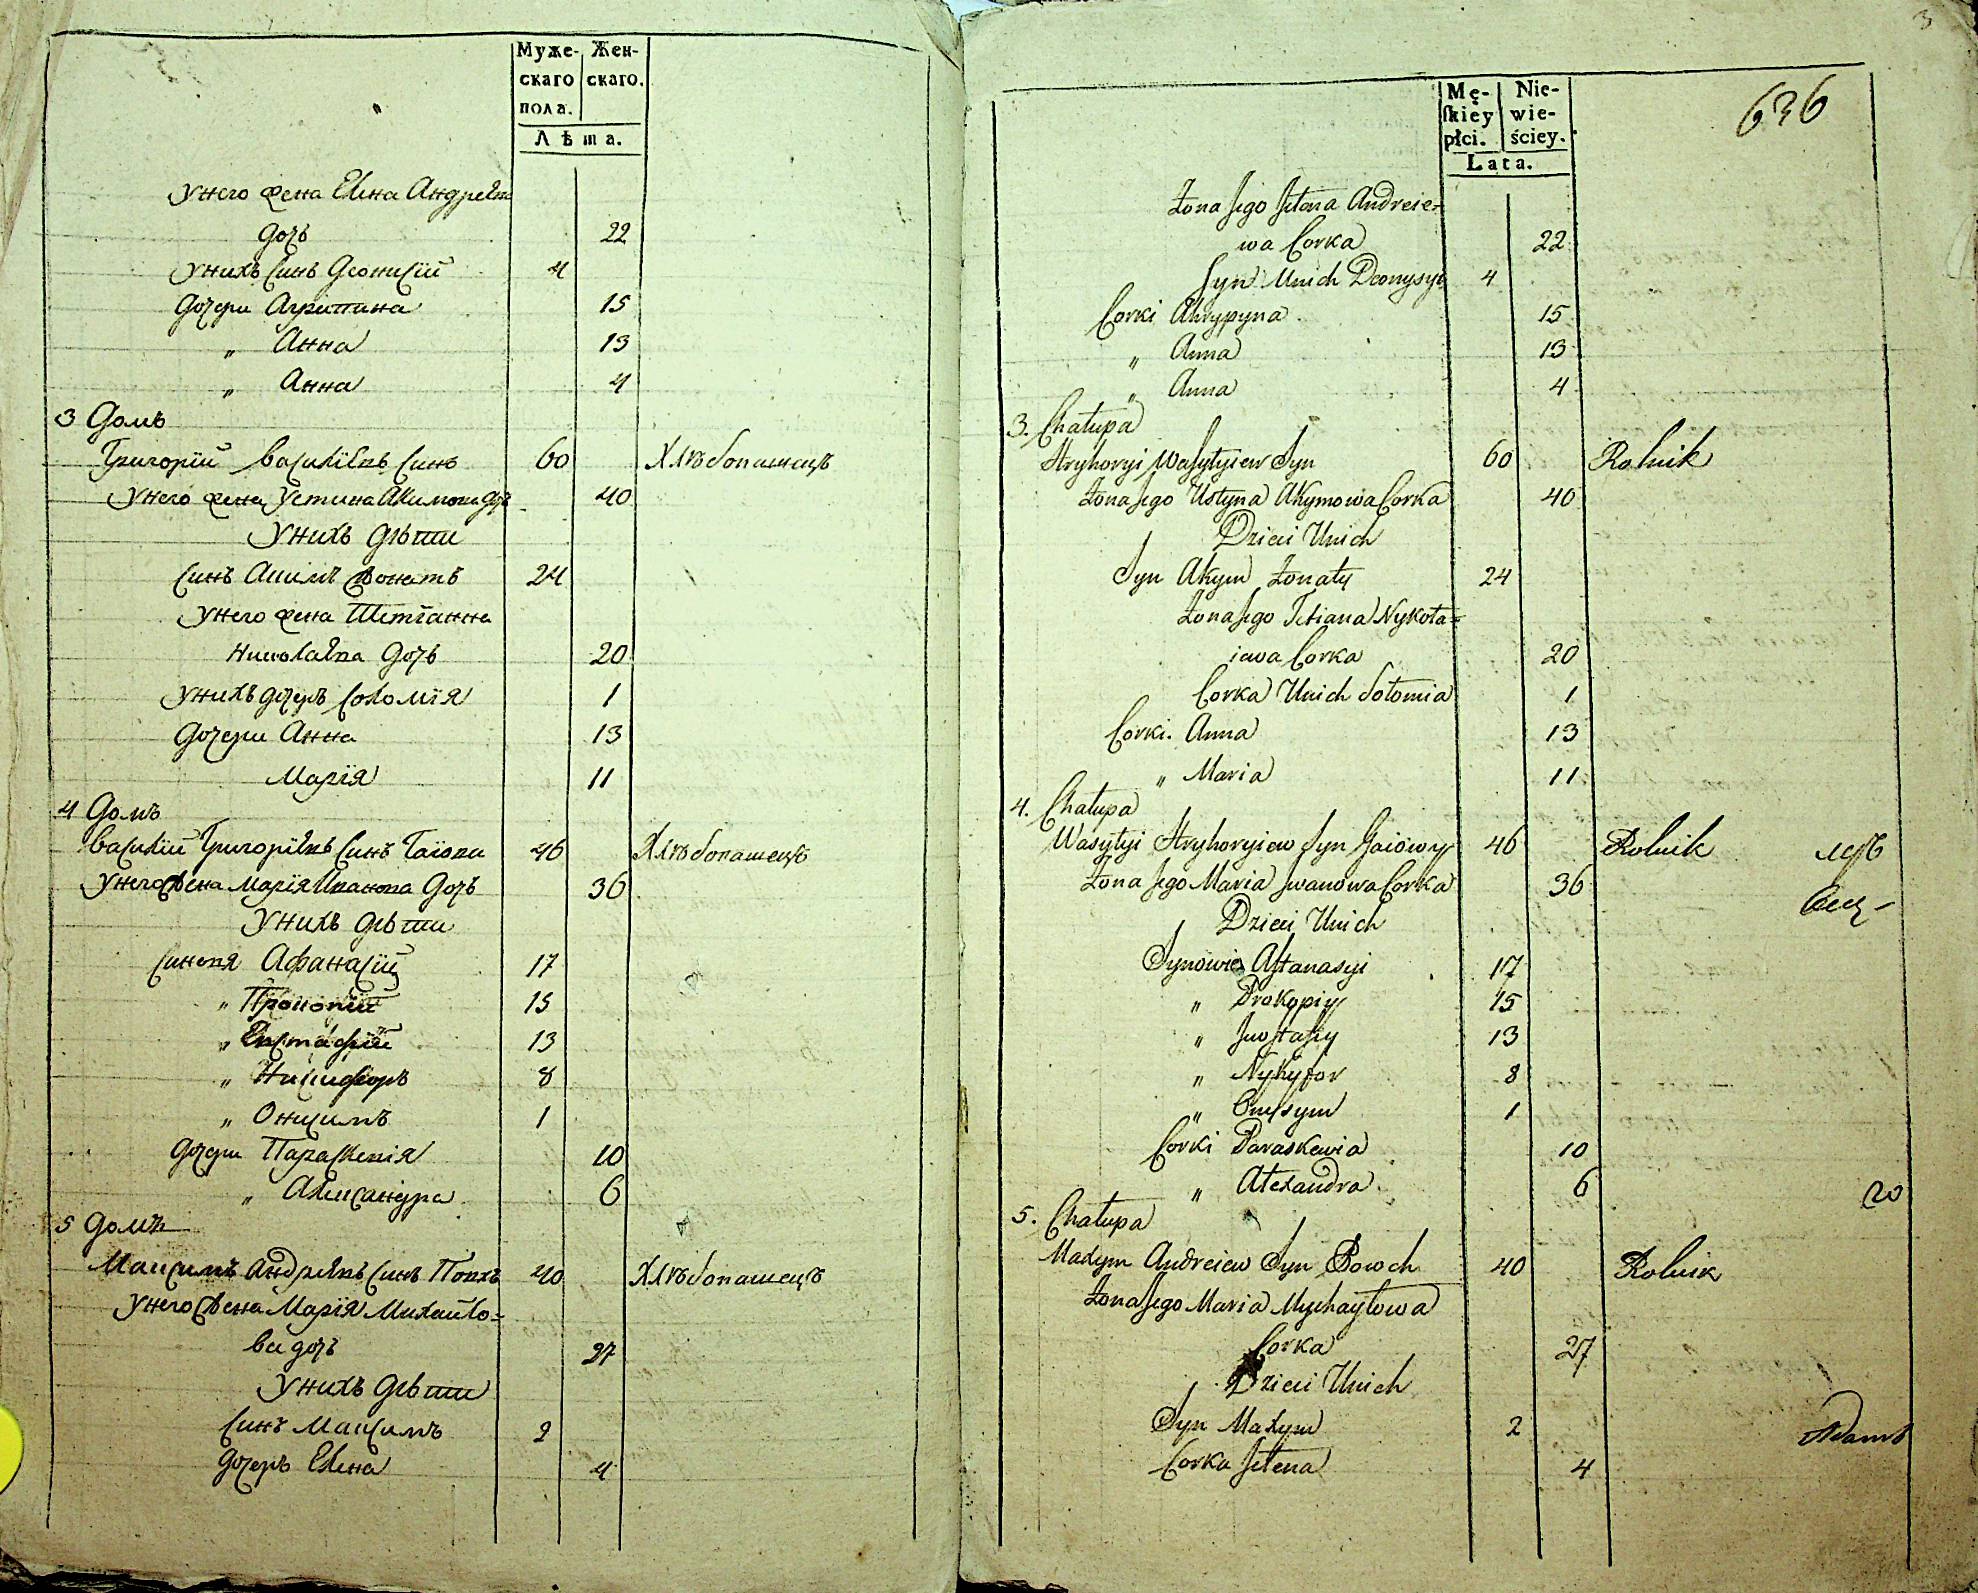 Муже- Жен-
скаго скаго.
пола.
Лѣта.
У него жена Елена Андреева
дочь 22
У нихъ Синъ Деонисій 4
Дочери Агрипина 15
„ Анна 13
„ Анна 4
3 Домъ
Григорій Василіевъ Синъ 60 Хлѣбопашецъ
У него жена Устина Акимова дочь 40
У нихъ дѣти
Синъ Акимъ жонатъ 24
У него жена Тетіанна
Николаева дочь 20
У нихъ дочерь Соломія 1
Дочери Анна 13
Марія 11
4 Домъ
Василій Григоріевъ Синъ Гаіови 46 Хлѣбопашецъ
У него жена Марія Иванова дочь 36
У нихъ дѣти
Синовя Афанасій 17
„ Прокопій 15
„ Евстафій 13
„ Никифоръ 8
„ Онисимъ 1
Дочери Параскевія 10
„ Александра 6
5 Домъ
Максимъ Андреевъ Синъ Повхъ 40 Хлѣбопашецъ
У него жена Марія Михайло=
ва дочь 27
У нихъ дѣти
Синъ Максимъ 2
Дочерь Елена 4
3
636
Mę- Nie-
skiey wie-
płci. ściey.
Lata.
Żona Jego Jełena Andreie-
wa Corka 22
Syn Unich Deonysyi 4
Corki Ahrypyna 15
„ Anna 13
„ Anna 4
3. Chałupa
Hryhoryi Wasylyiew Syn 60 Rolnik
Żona Jego Ustyna Akymowa Corka 40
Dzieci Unich
Syn Akym Żonaty 24
Żona Jego Tetiana Nykoła=
iewa Corka 20
Corka Unich Sołomia 1
Corki. Anna 13
„ Maria 11
4. Chałupa
Wasylyi Hryhoryiew Syn Gaiowy 46 Rolnik
Żona Jego Maria Iwanowa Corka 36
Dzieci Unich
Synowie Aftanasyi 17
„ Prokopiy 15
„ Jwstafiy 13
„ Nykyfor 8
„ Onysym 1
Corki Paraskewia 10
„ Alexandra 6
20
5. Chałupa
Maxym Andreiew Syn Powch 40 Rolnik
Żona Jego Maria Mychayłowa
Corka 27
Dzieci Unich
Syn Maxym 2
Corka Jełena 4